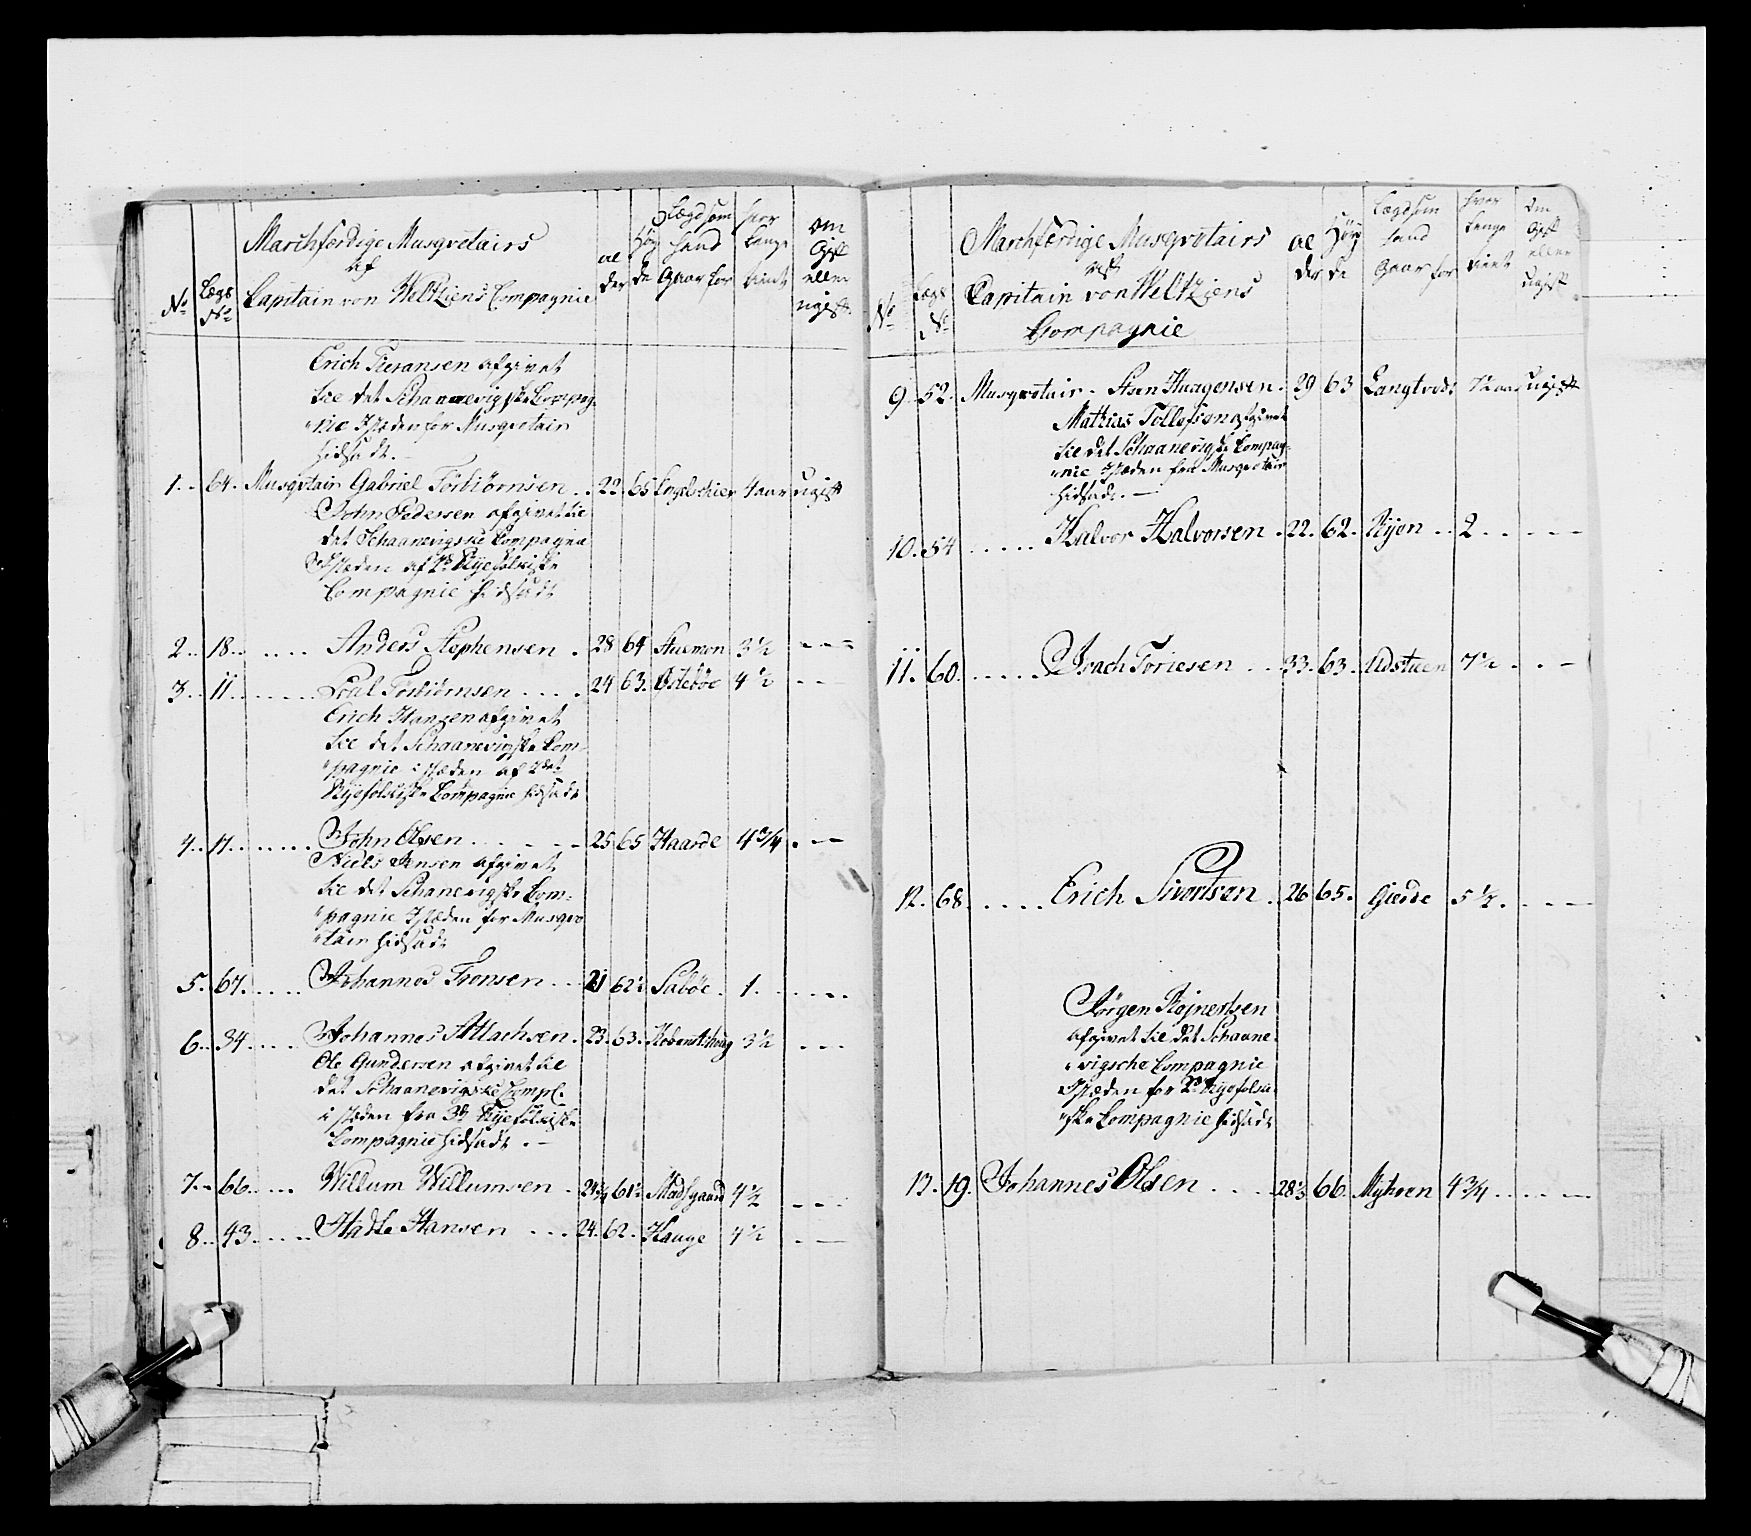 No
Lægs No
Marchferdige Musqvetairs
af
Capitain von Weltziens Compagnie
al der
Høy de
Lægd som hand Gaar for
hvor lenge tient
om Gift eller ugift
Erich afgivet
til det Schaanevigske Compag-
nie Istæden for Musqvetair
hidsadt.
1. 64. Musqvetair Gabriel Torbiørnsen 22. 65 4 aar ugift
John Pedersen afgivet til
det Schaanevigske Compagnie
Istæden af 2de Ryefolkiske
Compagnie hidsadt
2. 18. Anders Stephensen 28 64 3½
3. 11. Poul Torbiørnsen 24 63. Østebøe 4½
Erich Hansen afgivet
til det Schaanevigske Com-
pagnie i stæden af 2det
Ryefolkiske Compagnie hidsadt
4. 11. John Olsen 25 65 Haarde 4¾
Niels Jensen afgivet
til det Schanevigske Com-
pagnie Istæden for Musqve
tair hidsadt
5. 67. Johannes Tronsen 21 62½ Sabøe 1.
6. 34. Johannes Atlachsen 23. 63. 3½
Ole Gundersen afgivet til
det Schaanevigske Comp:
i stæden fra 3de Ryefolkiske
Compagnie hidsadt.
7. 66. Willum Willumsen 24½ 61½ Madsgaard 4½
8. 43. Hansen 24. 62. Hauge 4½
No
Lægs No
Marchferdige Musqvetairs
af
Capitain von Weltziens
Compagnie
al der
Høy de
Lægd som hand Gaar for
hvor lenge tient
Om Gift eller ugift
9. 52. Musqvetair Sten Haagensen 29 63 ugift
Mathias Tollefson afgivet
til det Schaanevigske Compag-
nie Istæden fra Musqvetair
hidsadt.
10. 54 Halvor Halvorsen 22. 62. 2
11. 60. Toriesen 33. 63. 7½
12. 68. Erich Sivertsen 26 65. Gierde 5½
Jørgen Rejnertsen
afgivet til det Schaane-
vigsche Compagnie
Istæden for 2de Ryefolki-
ske Compagnie hidsadt
13. 19. Johannes Olsen 28½ 66. 4¾